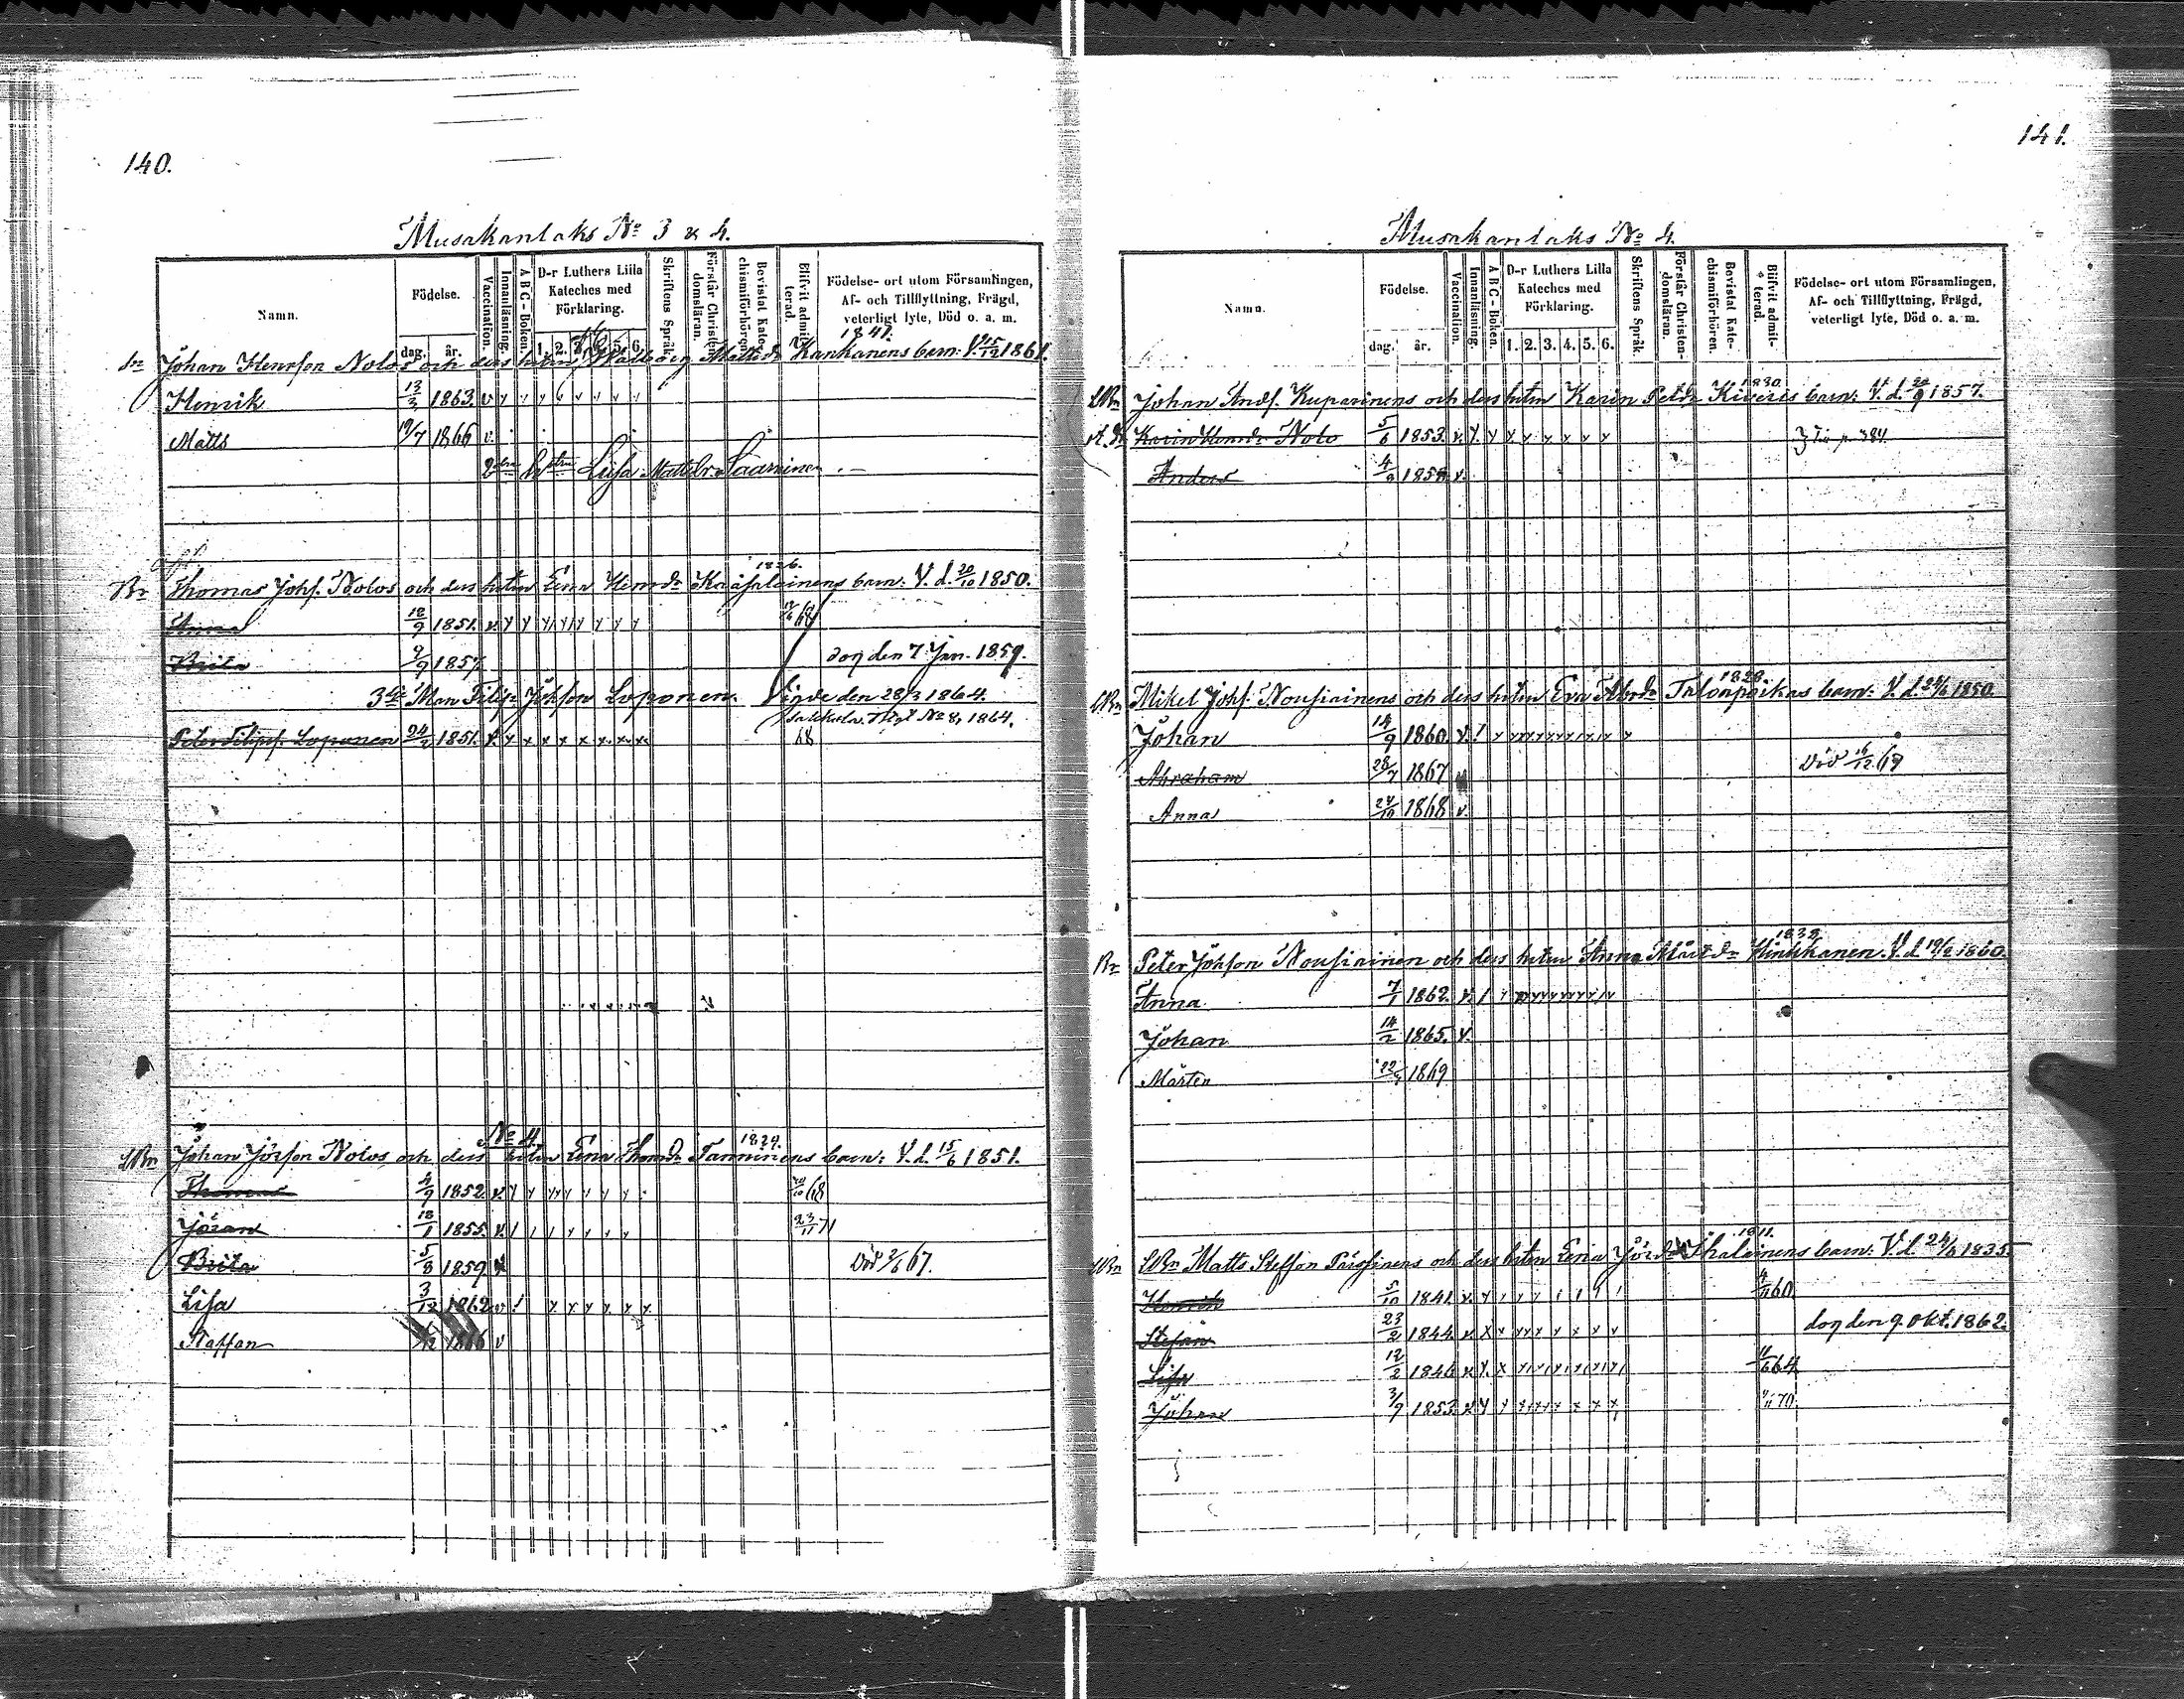 140.
Musakanlaks No 3 & 4.
Namn.
Födelse.
dag.
år.
Vaccination.
Innanläsning.
A B C - Boken.
D-r Luthers Lilla Kateches med Förklaring.
1. 2. 5. 6.
Skriftens Språk.
Förstår Christendomsläran.
Bevistat Katechismiförhören.
Blifvit admitterad.
Födelse- ort utom Församlingen, Af- och Tillflyttning, Frägd, veterligt lyte, Död o. a. m.
1841.
Johan Henrson Nolos och dess hstru Walborg Mattsdr Kankanens barn: V. 1861.
Henrik 13/3 1863. v
Matts 19/7 1866 v.
2dra hstru Lisa Mattsdr Saarninen
1826.
Br Thomas Johs. Nolos och dess hstru Ema Henrdr barn: V. d. 20/10 1850.
Anna 12/9 1851. 68
Brita 9/9 1857. dog den 7 Jan. 1859.
3de Man Filip Johson Loponen. Vigde den 28/3 1864.
No 8, 1864.
Peter Filips. Loponen 24/2 1851. 68
No 4.
1829.
Johan Jörson Nolos och dess hstru Ema Thomdr Tanninens barn: V. d. 15/6 1851.
Thomas 4/9 1852. 68
Jöran 18/1 1855. 23/11 71
Brita 5/8 1859 Död 2/6 67.
Lisa 3/12 1862 v
Staffan 1866 v
141.
Musakanlaks No 4.
Namn.
Födelse.
dag.
år.
Vaccination.
Innanläsning.
A B C - Boken.
D-r Luthers Lilla Kateches med Förklaring.
1. 2. 3. 4. 5. 6.
Skriftens Språk.
Förstår Christendomsläran.
Bevistat Katechismiförhören.
Blifvit admitterad.
Födelse- ort utom Församlingen, Af- och Tillflyttning, Frägd, veterligt lyte, Död o. a. m.
1830.
Johan Ands. Kuparinens och dess hstru Karin Petdr Kiveris barn: V. d. 1857.
Karin Henrdr Nolo 5/6 1853. p. 384.
Anders 1859. v.
1828.
Mikel Johs. Nousiainens och dess hstru Eva Abrdr Talonpoikas barn: V. d. 1850.
Johan 14/9 1860. v.
Abraham 28/7 1867 Död
Anna 24/10 1868 v.
1839.
Br Peter Johson Nousiainen och dess hstru Anna Mårtdr Hinkkanen. V. d. 19/2 1860.
Anna 7/1 1862.
Johan 14/2 1865. v.
Mårten 1869
1811.
Matts Steffan och dess hstru Ema Jördr barn: V. d. 24/6 1835.
Henrik 5/10 1841. 60
Stefan 23/2 1844. dog den 9. Okt. 1862.
Lisa 12/2 1846 64
Johan 3/9 1853. 70.